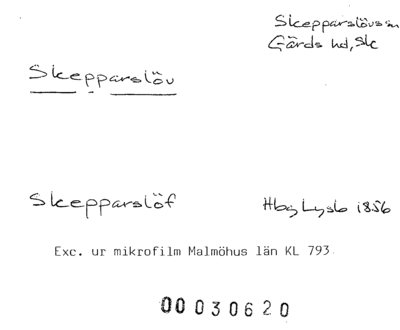 Skepparslövs sn
Gärds hd, Sk
Skepparslöv
Skepparslöf
Hbg Lysb 1856
Exc. ur mikrofilm Malmöhus län KL 793.
00030620